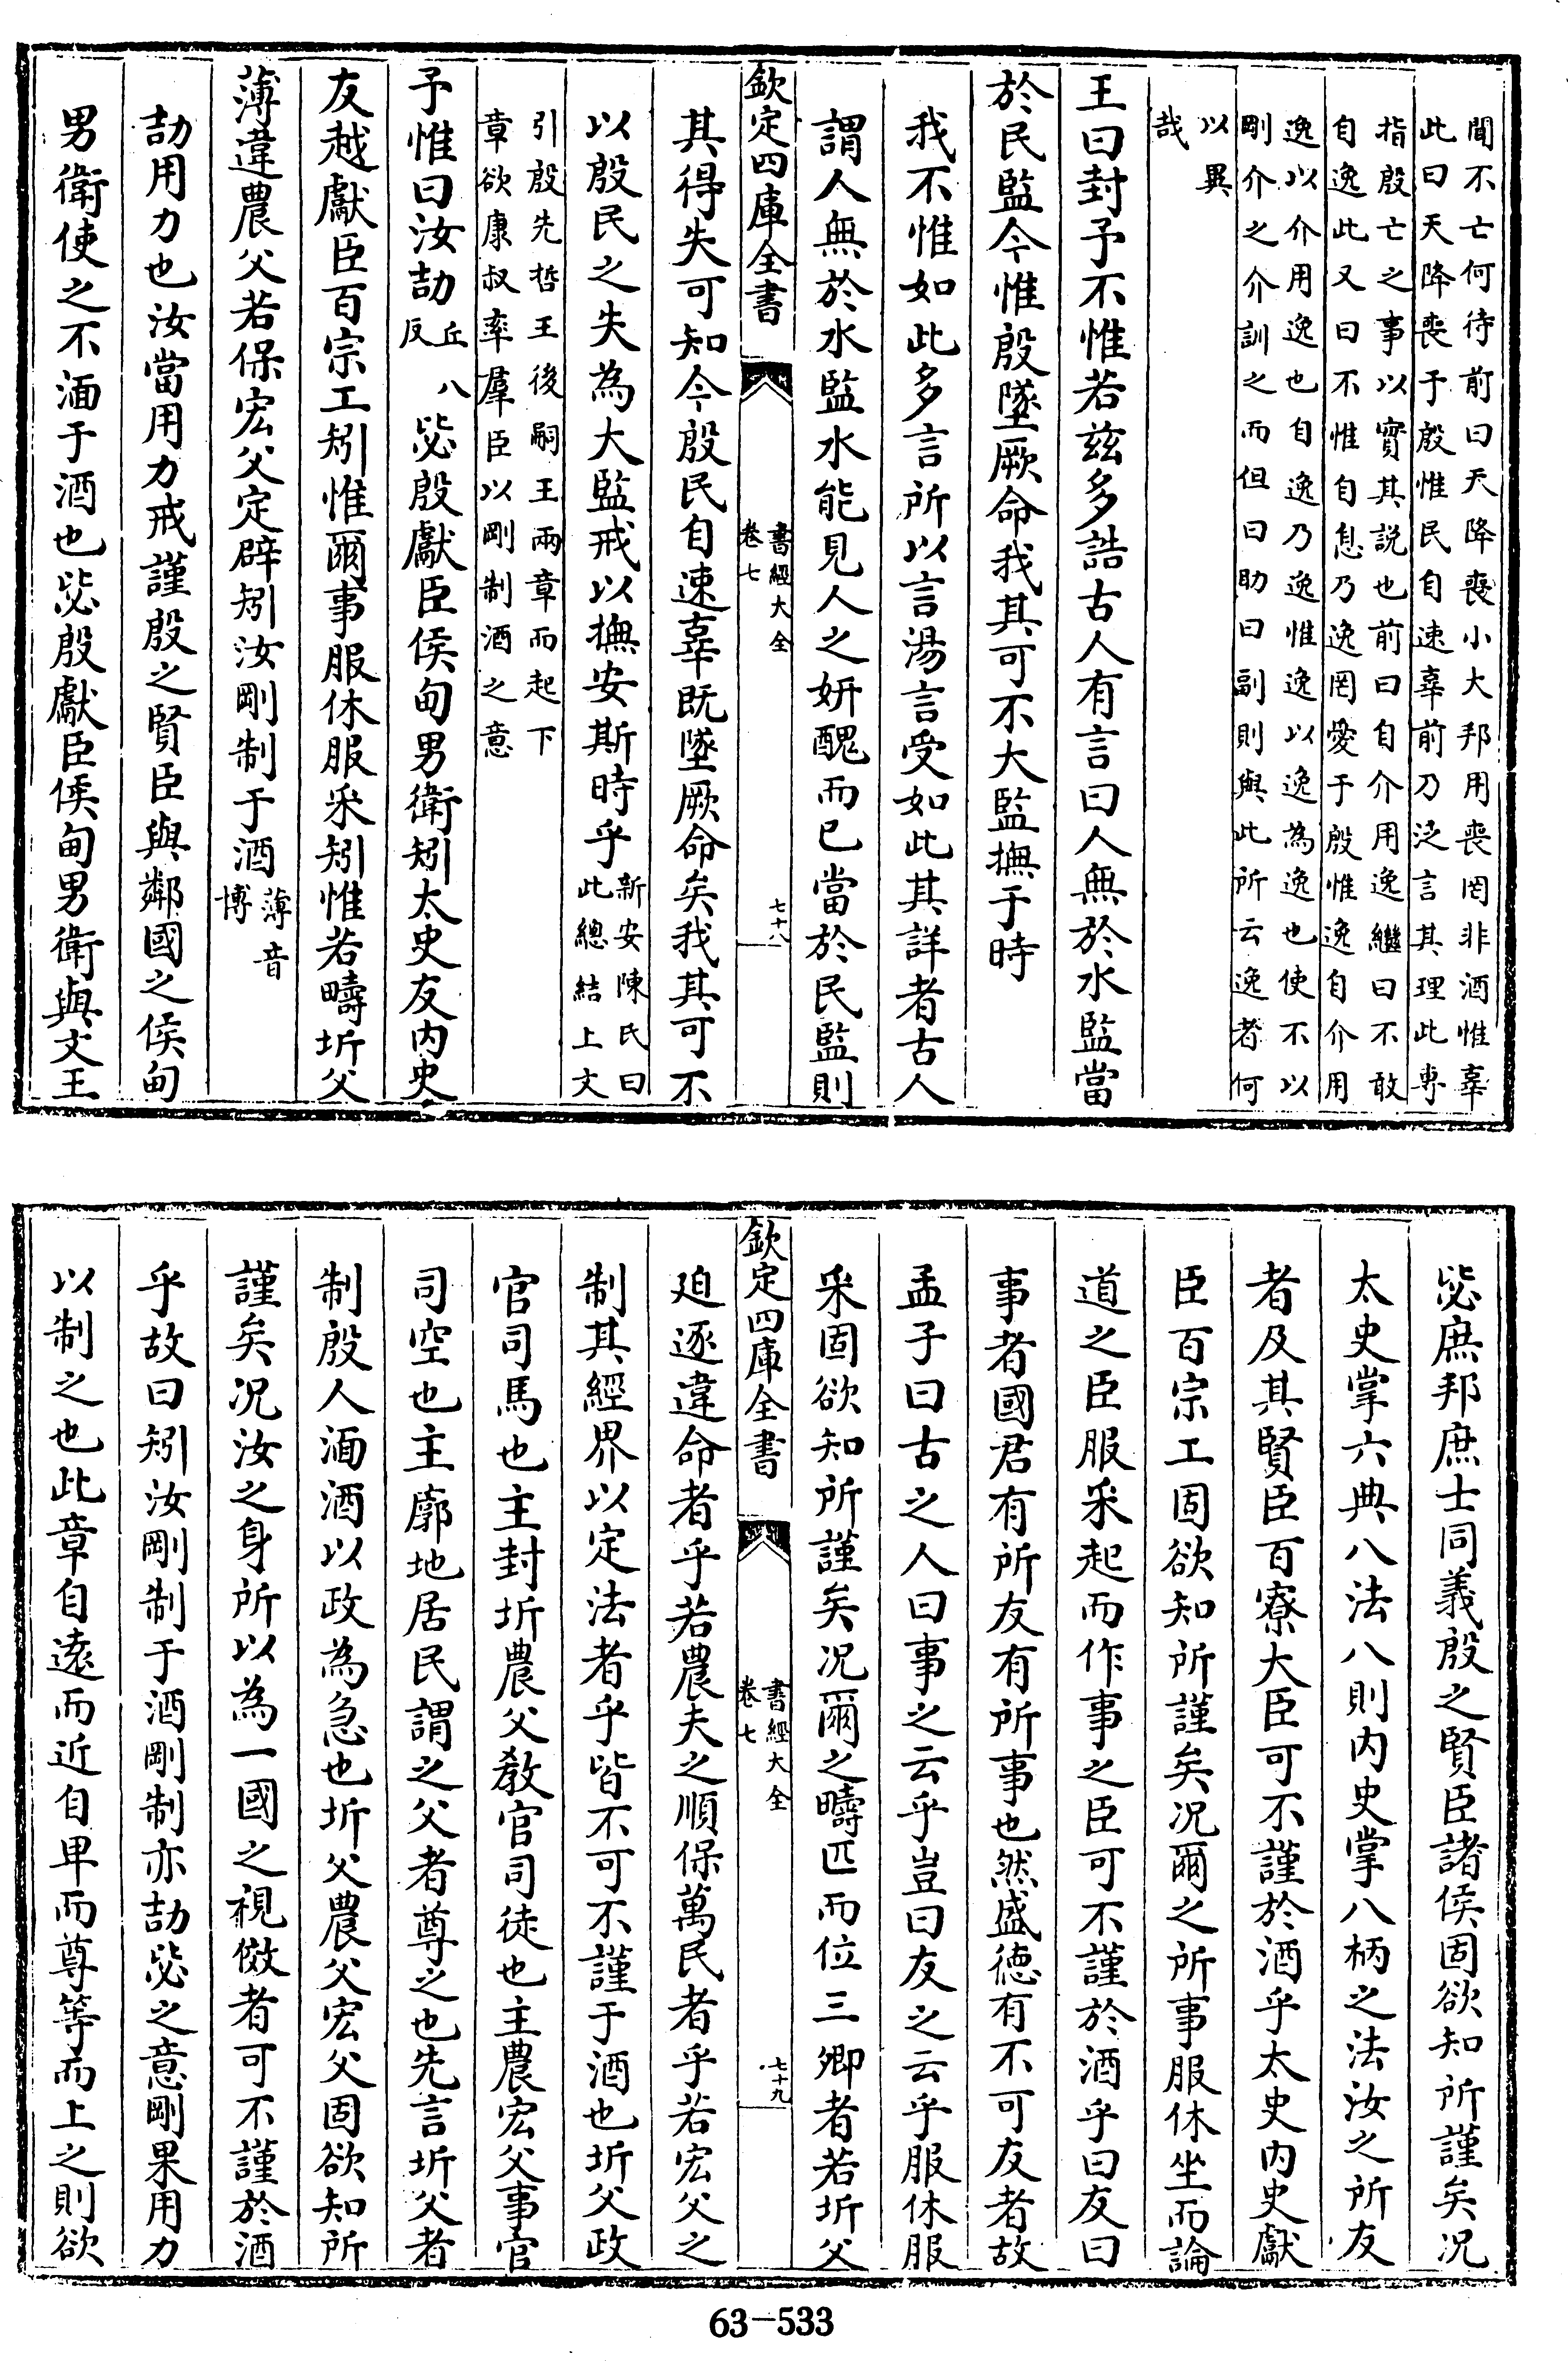 聞不亡何待前曰天降喪小大邦用喪罔非酒惟辜
此曰天降喪于殷惟民自速辜前乃泛言其理此専
指殷亡之事以實其説也前曰自介用逸繼曰不敢
自逸此又曰不惟自息乃逸罔愛于殷惟逸自介用
逸以介用逸也自逸乃逸惟逸以逸為逸也使不以
剛介之介訓之而但曰助曰副則與此所云逸者何
以異
哉
王曰封予不惟若兹多誥古人有言曰人無於水監當
於民監今惟殷墜厥命我其可不大監撫于時
我不惟如此多言所以言湯言受如此其詳者古人
謂人無於水監水能見人之妍醜而已當於民監則
欽定四庫全書
書經大全
卷七
七十八
其得失可知今殷民自速辜既墜厥命矣我其可不
以殷民之失為大監戒以撫安斯時乎新安陳氏曰
此總結上文
引殷先哲王後嗣王兩章而起下
章欲康叔率羣臣以剛制酒之意
予惟曰汝劼丘八
反毖殷獻臣侯甸男衛矧太史友内史
友越獻臣百宗工矧惟爾事服休服采矧惟若疇圻父
薄違農父若保宏父定辟矧汝剛制于酒薄音
博
劼用力也汝當用力戒謹殷之賢臣與鄰國之侯甸
男衛使之不湎于酒也毖殷獻臣侯甸男衛與文王
毖庶邦庶士同義殷之賢臣諸侯固欲知所謹矣况
太史掌六典八法八則内史掌八柄之法汝之所友
者及其賢臣百寮大臣可不謹於酒乎太史内史獻
臣百宗工固欲知所謹矣况爾之所事服休坐而論
道之臣服采起而作事之臣可不謹於酒乎曰友曰
事者國君有所友有所事也然盛徳有不可友者故
孟子曰古之人曰事之云乎豈曰友之云乎服休服
采固欲知所謹矣况爾之疇匹而位三卿者若圻父
欽定四庫全書
書經大全
卷七
七十九
廹逐違命者乎若農夫之順保萬民者乎若宏父之
制其經界以定法者乎皆不可不謹于酒也圻父政
官司馬也主封圻農父教官司徒也主農宏父事官
司空也主廓地居民謂之父者尊之也先言圻父者
制殷人湎酒以政為急也圻父農父宏父固欲知所
謹矣况汝之身所以為一國之視傚者可不謹於酒
乎故曰矧汝剛制于酒剛制亦劼毖之意剛果用力
以制之也此章自逺而近自卑而尊等而上之則欲
63-533